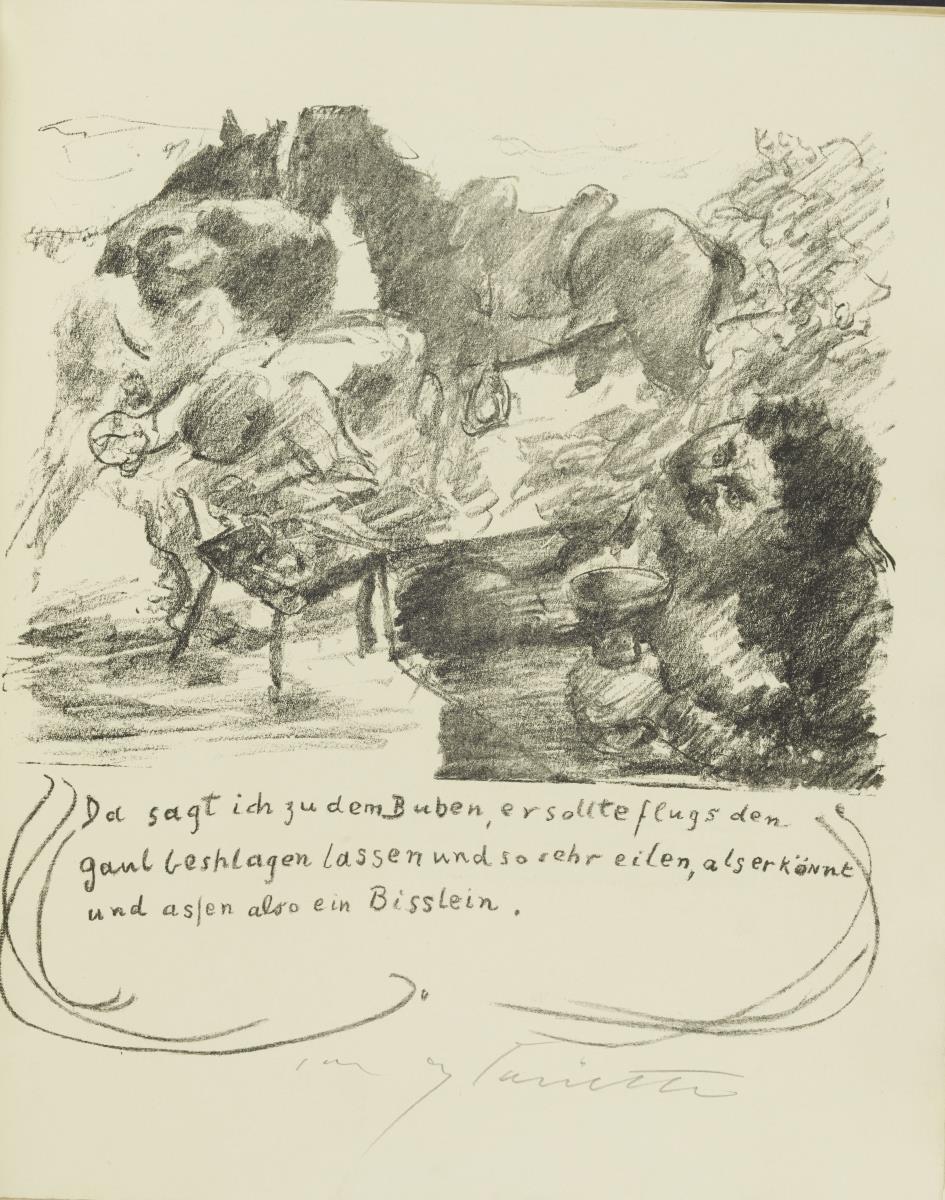 Da sagt ich zu dem Buben, er sollte flugs den
gaul beshlagen lassen und so sehr eilen, als er könnt
und assen also ein Bisslein.